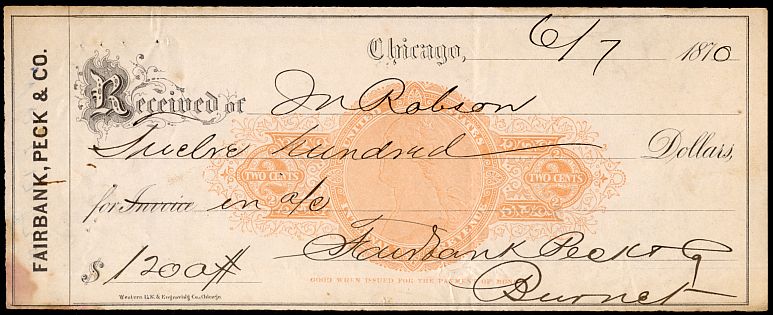 FAIRBANK, PECK & CO.
Chicago, 6/7 1870
Received of Jn Robson
Twelve hundred Dollars,
for Invoice on a/c
$ 1200 Fairbank Peck & Co
Burnet
TWO CENTS
TWO CENTS
UNITED STATES
INTERNAL REVENUE
GOOD WHEN ISSUED FOR THE PAYMENT OF MONEY
Western B.N. & Engraving Co., Chicago.